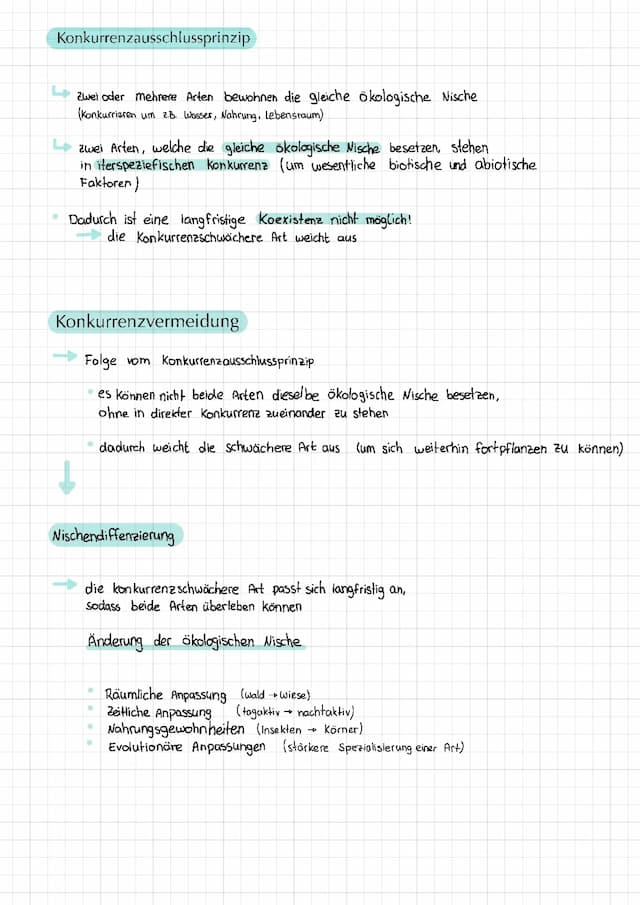 Konkurrenzausschlussprinzip
zwei oder mehrere Arten bewohnen die gleiche ökologische Nische
(Konkurrieren um z.B. Wasser, Nahrung, Lebensraum)
zwei Arten, welche die gleiche ökologische Nische besetzen, stehen
in iterspeziefischen Konkurrenz (um wesentliche biotische und abiotische
Faktoren)
Dadurch ist eine langfristige Koexistenz nicht möglich!
die Konkurrenzschwächere Art weicht aus
Konkurrenzvermeidung
Folge vom Konkurrenzausschlussprinzip
es können nicht beide Arten dieselbe ökologische Nische besetzen,
ohne in direkter Konkurrenz zueinander zu stehen
dadurch weicht die schwächere Art aus (um sich weiterhin fortpflanzen zu können)
Nischendiffenzierung
die konkurrenzschwächere Art passt sich langfristig an,
sodass beide Arten überleben können
Änderung der ökologischen Nische
Räumliche Anpassung (wald → wiese)
Zeitliche Anpassung (tagaktiv → nachtaktiv)
Nahrungsgewohnheiten (Insekten → Körner)
Evolutionäre Anpassungen (stärkere Spezialisierung einer Art)